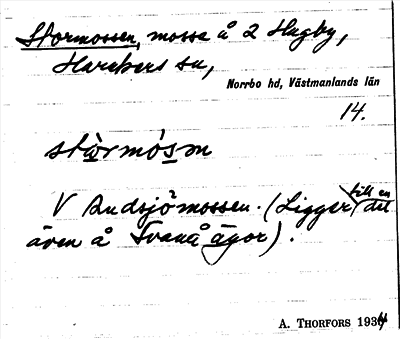 Stormossen, mosse å 2 Hugby,
Harakers sn,
Norrbo hd, Västmanlands län
14.
stòrmósṃ
V Andsjömossen. (Ligger till en del
även å Svanå ägor).
A. THORFORS 1934